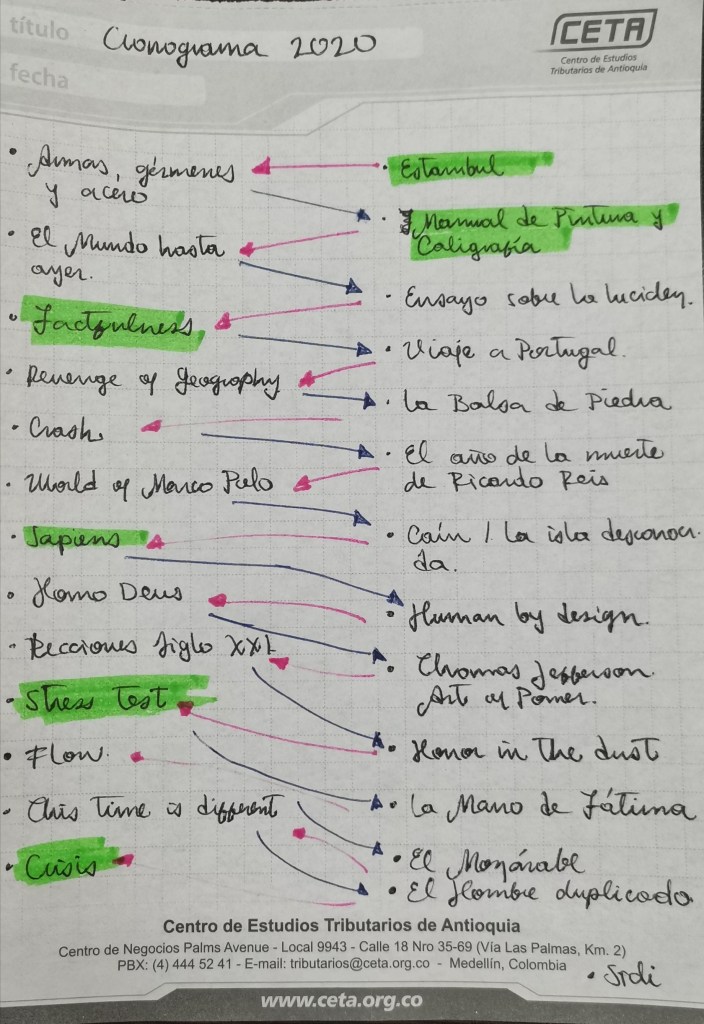 título
Cronograma 2020
CETA
Centro de Estudios
Tributarios de Antioquia
fecha
• Armas, gérmenes
y acero
• El Mundo hasta
ayer.
• Factfulness
• Revenge of Geography
• Crash
• World of Marco Polo
• Sapiens
• Homo Deus
• Lecciones Siglo XXI
• Stress Test
• Flow.
• This Time is different
• Crisis
• Estambul
• Manual de Pintura y
Caligrafía
• Ensayo sobre la lucidez.
• Viaje a Portugal.
• La Balsa de Piedra
• El año de la muerte
de Ricardo Reis
• Caín / La isla desconoci-
da.
• Human by design.
• Thomas Jefferson.
Art of Power.
• Honor in the dust
• La Mano de Fátima
• El Mozárabe
• El Hombre duplicado
Centro de Estudios Tributarios de Antioquia
Centro de Negocios Palms Avenue - Local 9943 - Calle 18 Nro 35-69 (Vía Las Palmas, Km. 2)
PBX: (4) 444 52 41 - E-mail: tributarios@ceta.org.co - Medellín, Colombia
• Sidi
www.ceta.org.co